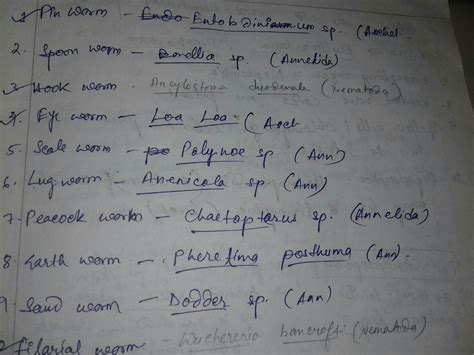 1. Pin worm - Entobinium sp.
2. Spoon worm - Bonellia sp. (Annelida)
3. Hook worm - Ancylostoma duodenale (Nematoda)
4. Eye worm - Loa Loa (Asch
5. Scale worm - Polynoe sp (Ann)
6. Lug worm - Arenicola sp. (Ann)
7. Peacock work - Chaetoptarus sp. (Annelida)
8. Earth worm - Pheretima posthuma (Ann).
9. Sand worm - Dodder sp. (Ann)
Filarial worm - Wuchereria bancrofti (Nematoda)